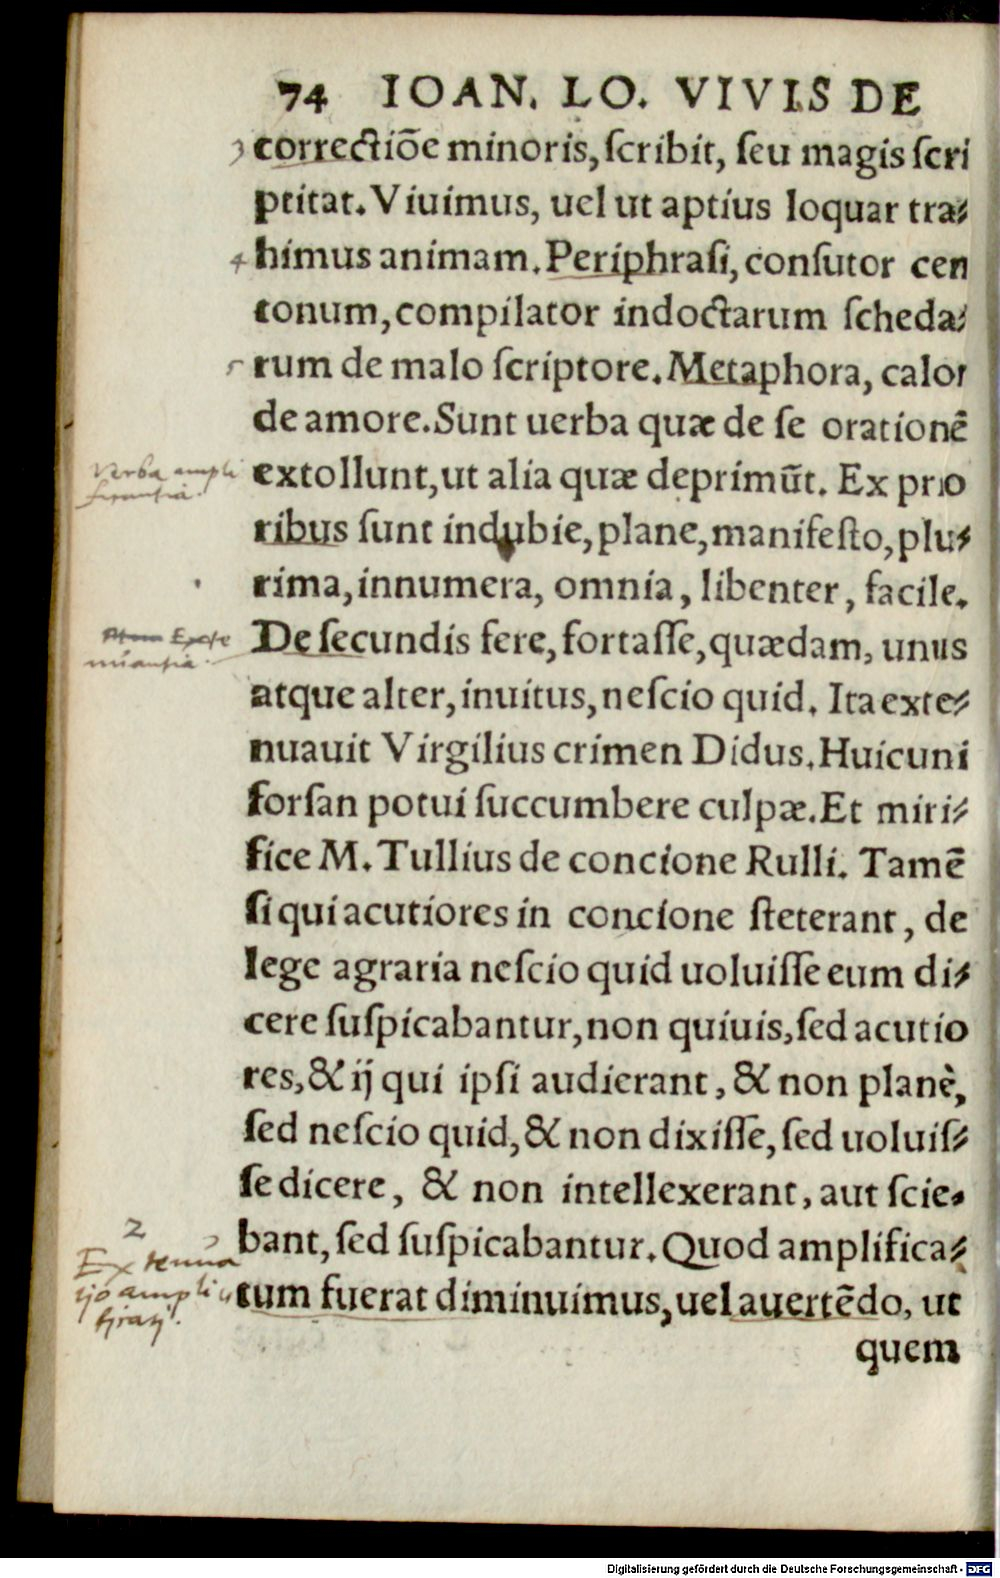 74 IOAN. LO. VIVIS DE
3 correctiõe minoris, ſcribit, ſeu magis ſcri
ptitat. Viuimus, uel ut aptius loquar tra⸗
4 himus animam. Periphraſi, conſutor cen
tonum, compilator indoctarum ſcheda⸗
5 rum de malo ſcriptore. Metaphora, calor
de amore. Sunt uerba quæ de ſe orationẽ
Verba ampli
ficantia.
extollunt, ut alia quæ deprimũt. Ex prio
ribus ſunt indubie, plane, manifeſto, plu⸗
rima, innumera, omnia, libenter, facile.
Exte
nuantia.
De ſecundis fere, fortaſſe, quædam, unus
atque alter, inuitus, neſcio quid. Ita exte⸗
nuauit Virgilius crimen Didus. Huic uni
forſan potui ſuccumbere culpæ. Et miri⸗
fice M. Tullius de concione Rulli. Tamẽ
ſi qui acutiores in concione ſteterant, de
lege agraria neſcio quid uoluiſſe eum di⸗
cere ſuſpicabantur, non quiuis, ſed acutio
res, & ij qui ipſi audierant, & non planè,
ſed neſcio quid, & non dixiſſe, ſed uoluiſ⸗
ſe dicere, & non intellexerant, aut ſcie⸗
bant, ſed ſuſpicabantur. Quod amplifica⸗
2
Extenua
tio ampli
tum fuerat diminuimus, uel auertẽdo, ut
quem
Digitalisierung gefördert durch die Deutsche Forschungsgemeinschaft - DFG